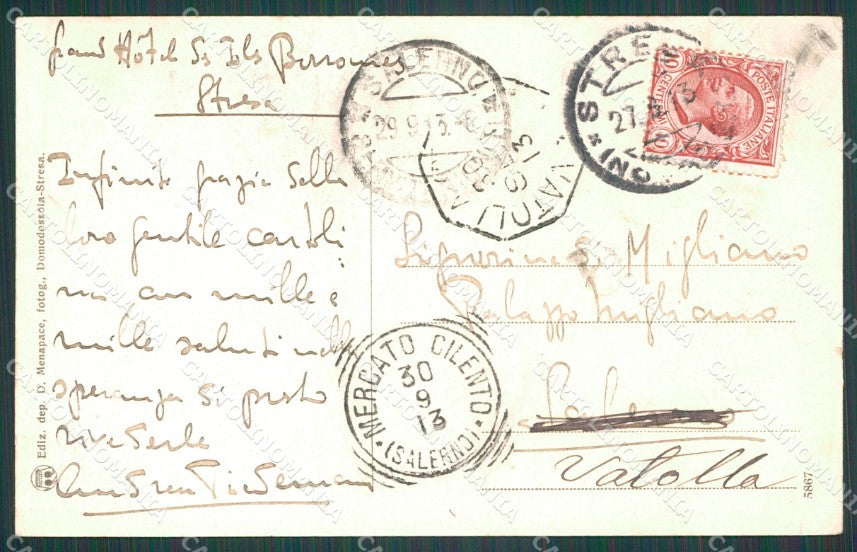 Grand Hôtel Ss Isls Borromées
Stresa
Infinite grazie della
loro gentile cartoli
na con mille e
mille saluti nella
speranza di presto
rivederle
Ediz. dep. D. Menapace, fotog., Domodossola-Stresa.
SALERNO
29.9.13
NATOLI
30 9 13
STRESA
27.
POSTE ITALIANE
10
10
Signorine Migliano
Palazzo Migliano
Salerno
Vatolla
MERCATO CILENTO
30
9
13
(SALERNO)
5867
CARTOLINOMANIA